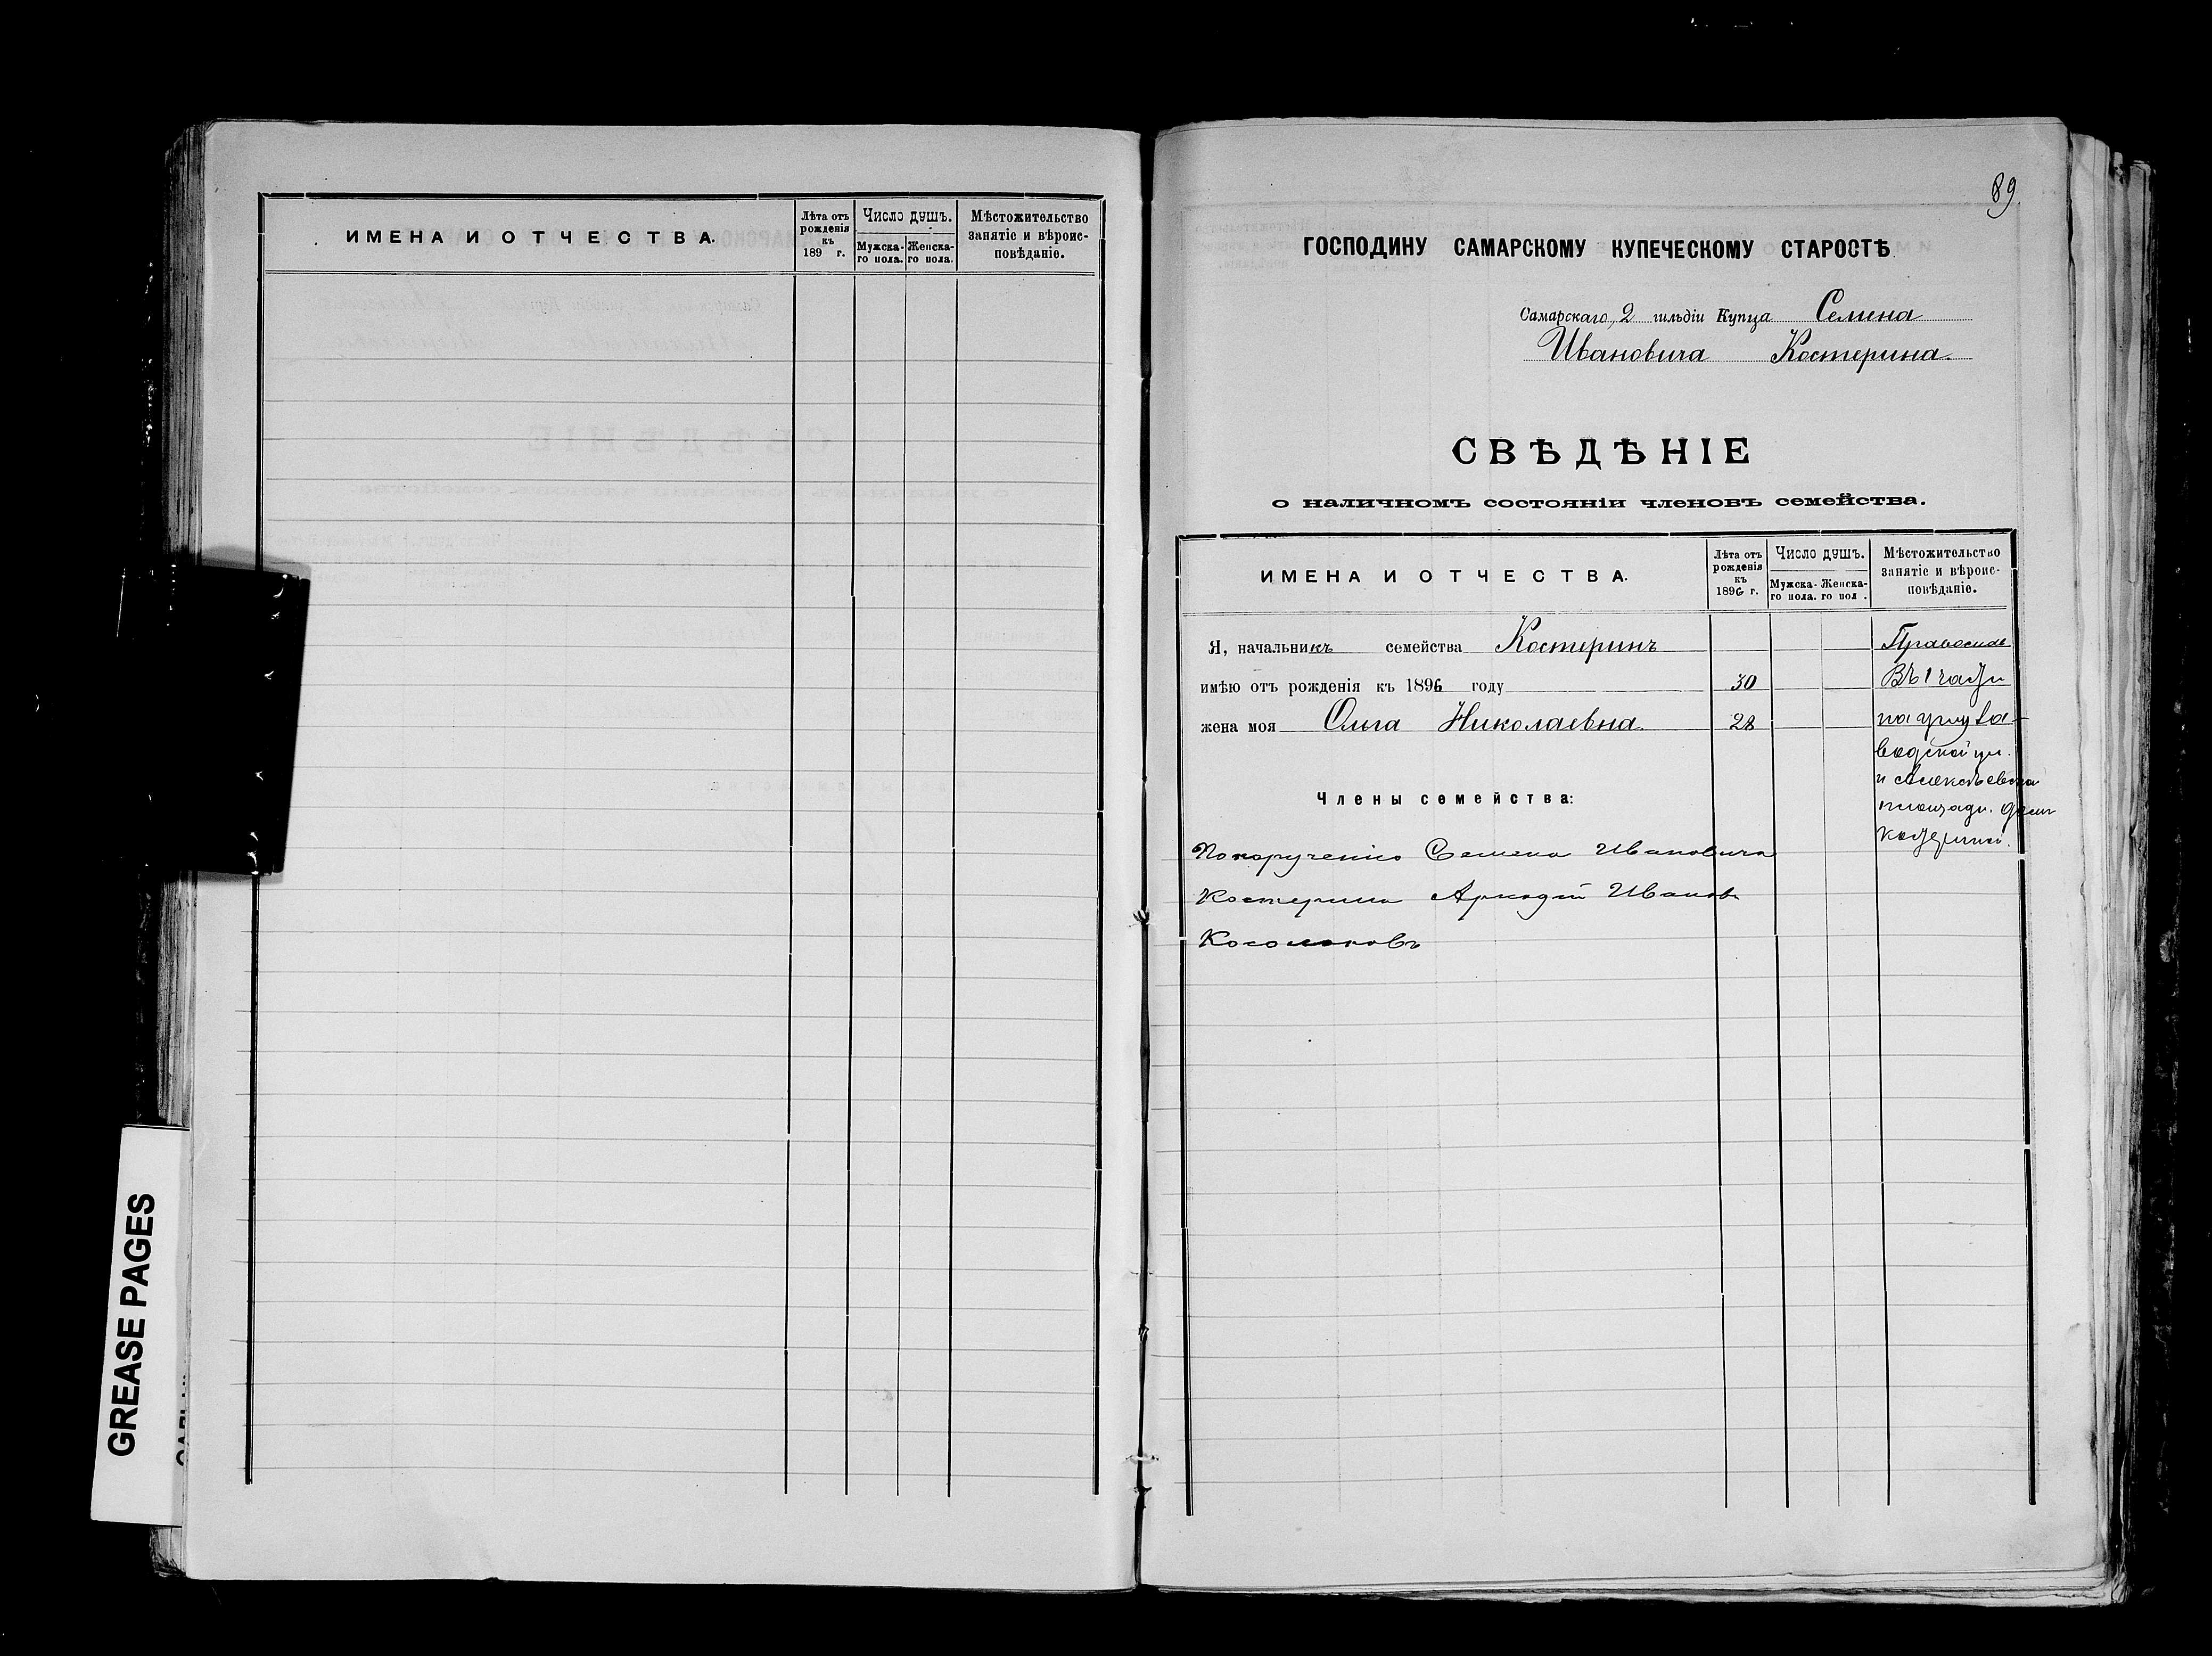 ИМЕНА И ОТЧЕСТВА.
Лѣта отъ
рожденія
къ
189 г.
Число душъ.
Мужска-
го пола.
Женска-
го пола.
Мѣстожительство
занятіе и вѣроис-
повѣданіе.
GREASE PAGES
89
ГОСПОДИНУ САМАРСКОМУ КУПЕЧЕСКОМУ СТАРОСТѢ
Самарскаго, 2 гильдіи Купца Семена
Ивановича Костерина
СВѢДѢНІЕ
о наличномъ состояніи членовъ семейства.
ИМЕНА И ОТЧЕСТВА.
Лѣта отъ
рожденія
къ
1896 г.
Число душъ.
Мужска-
го пола.
Женска-
го пол .
Мѣстожительство
занятіе и вѣроис-
повѣданіе.
Я, начальникъ семейства Костеринъ
имѣю отъ рожденія къ 1896 году 30
Въ 1 части
жена моя Ольга Николаевна 28
на углу За-
водской ул.
и Алексѣевской
площади. домъ
Костерина.
Члены семейства:
По порученію Семена Ивановича
Костерина Аркадій Иванов